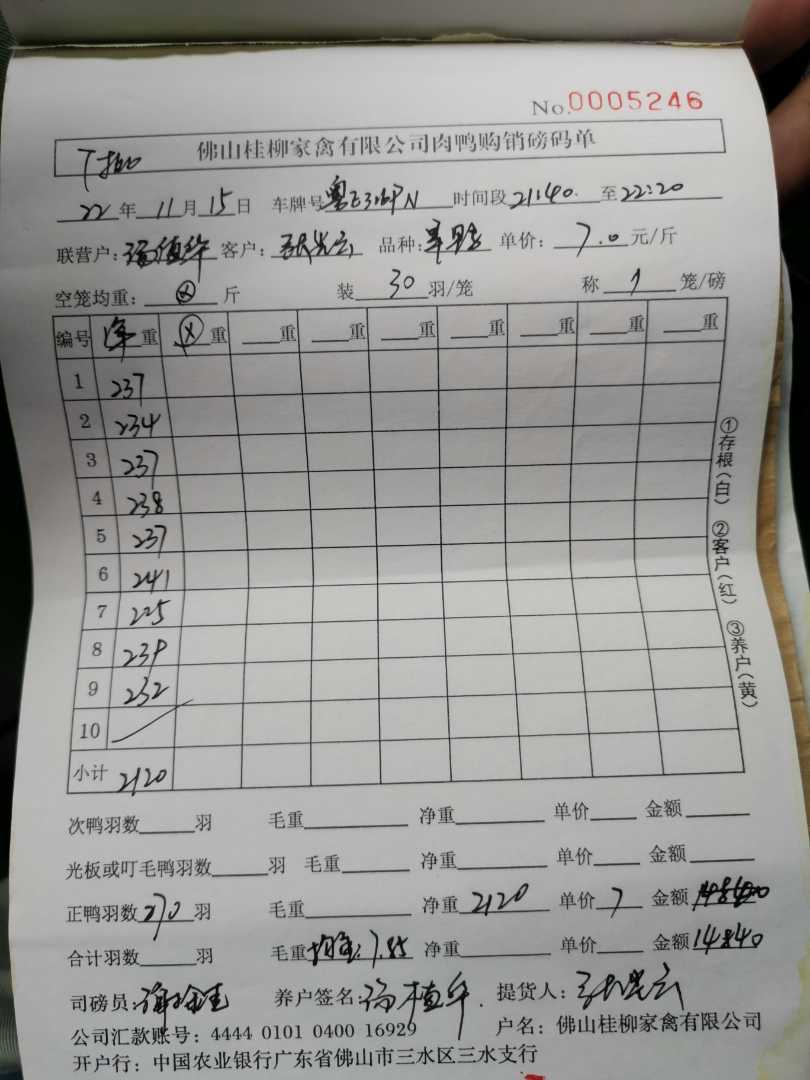 No.0005246
佛山桂柳家禽有限公司肉鸭购销磅码单
22年11月15日 车牌号 时间段21:40. 至22:20
联营户: 客户: 品种: 单价:7.0元/斤
空笼均重:⊗斤 装30羽/笼 称1笼/磅
编号 净重 ⊗重 重 重 重 重 重 重 重
1 237
2 234
3 237
4 238
5 237
6 241
7 225
8 239
9 232
10
小计 2120
次鸭羽数 羽 毛重 净重 单价 金额
光板或叮毛鸭羽数 羽 毛重 净重 单价 金额
正鸭羽数270羽 毛重 净重2120 单价7 金额
合计羽数 羽 毛重均重:7.85 净重 单价 金额14840
司磅员: 养户签名: 提货人:
公司汇款账号: 4444 0101 0400 16929 户名: 佛山桂柳家禽有限公司
开户行: 中国农业银行广东省佛山市三水区三水支行
①存根(白) ②客户(红) ③养户(黄)